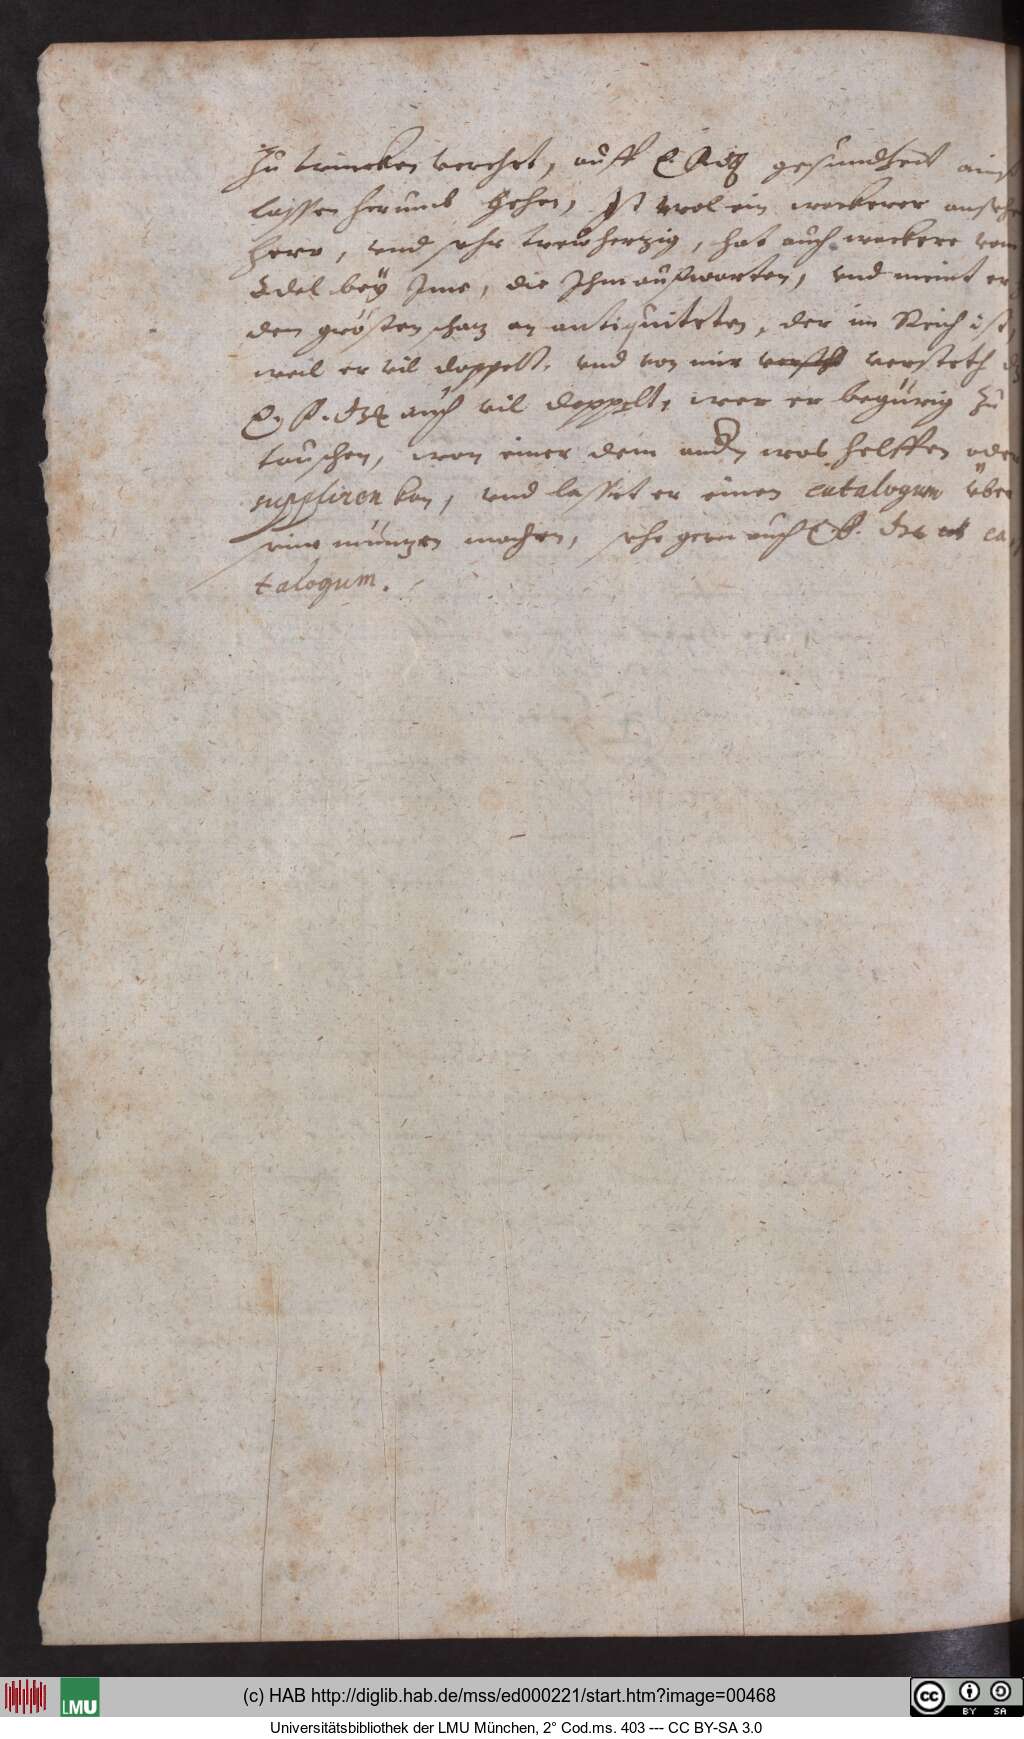 zu trincken verehrt, auff E. gesundtheit
lassen herumb gehen, Ist wol ein wackerer
herr, und sehr trewhertzig, hat auch wackere vom
Edel bey Ime, die Ihm aufwarten, und meint er
den grösten schatz an antiquiteten, der im Reich ist,
weil er vil doppelt, und von mir versteth
E. F. auch vil doppelt, wer er begürig zu
tauschen, wan einer dem andern was helffen oder
suppliren kan, und lasset er einen catalogum über
seine müntzen machen, sehe gern auch E. F. ca-
talogum.
(c) HAB http://diglib.hab.de/mss/ed000221/start.htm?image=00468
LMU
cc BY SA
Universitätsbibliothek der LMU München, 2° Cod.ms. 403 --- CC BY-SA 3.0